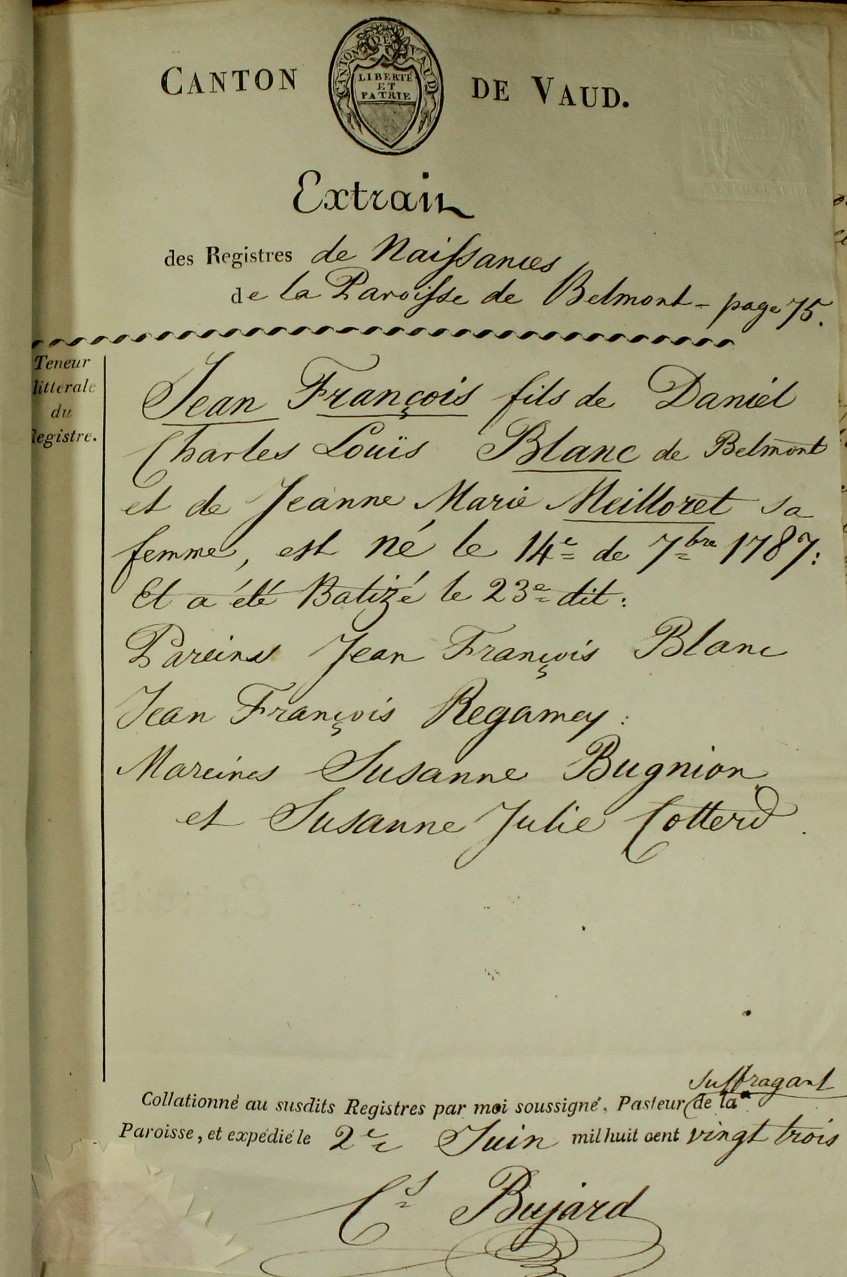 CANTON DE VAUD.
CANTON DE VAUD
LIBERTÉ
ET
PATRIE
Extrait
des Registres de Naissances
de la Paroisse de Belmont - page 75.
Teneur
littérale
du
Registre.
Jean François fils de Daniel
Charles Louïs Blanc de Belmont
et de Jeanne Marie Meilloret sa
femme, est né le 14e de 7bre 1787:
Et a été Batizé le 23e dit:
Pareins Jean François Blanc
Jean François Regamey:
Mareines Susanne Bugnion
et Susanne Julie Cotterd.
suffragant
Collationné au susdits Registres par moi soussigné, Pasteur de la
Paroisse, et expédié le 2e Juin mil huit cent vingt trois
Cs Bujard